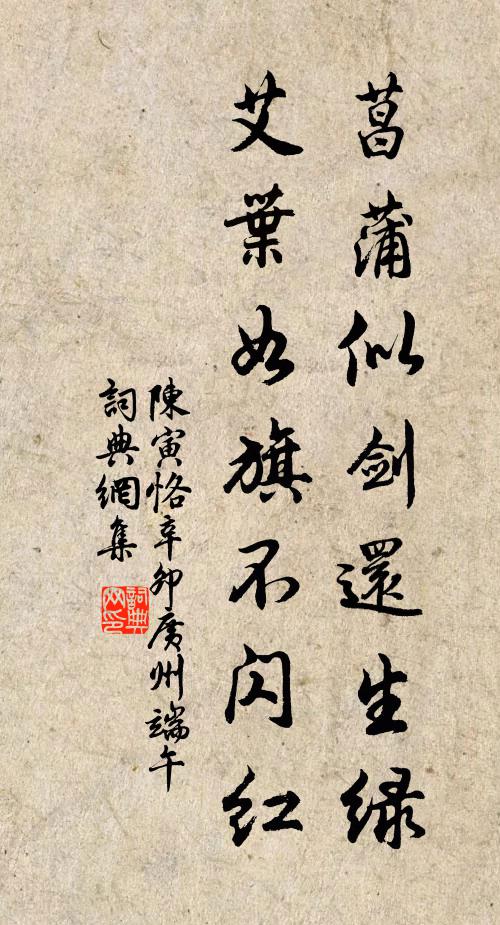 菖蒲似剑還生緑
艾葉如旗不闪红
陳寅恪辛卯廣州端午
詞典網集
詞典网印